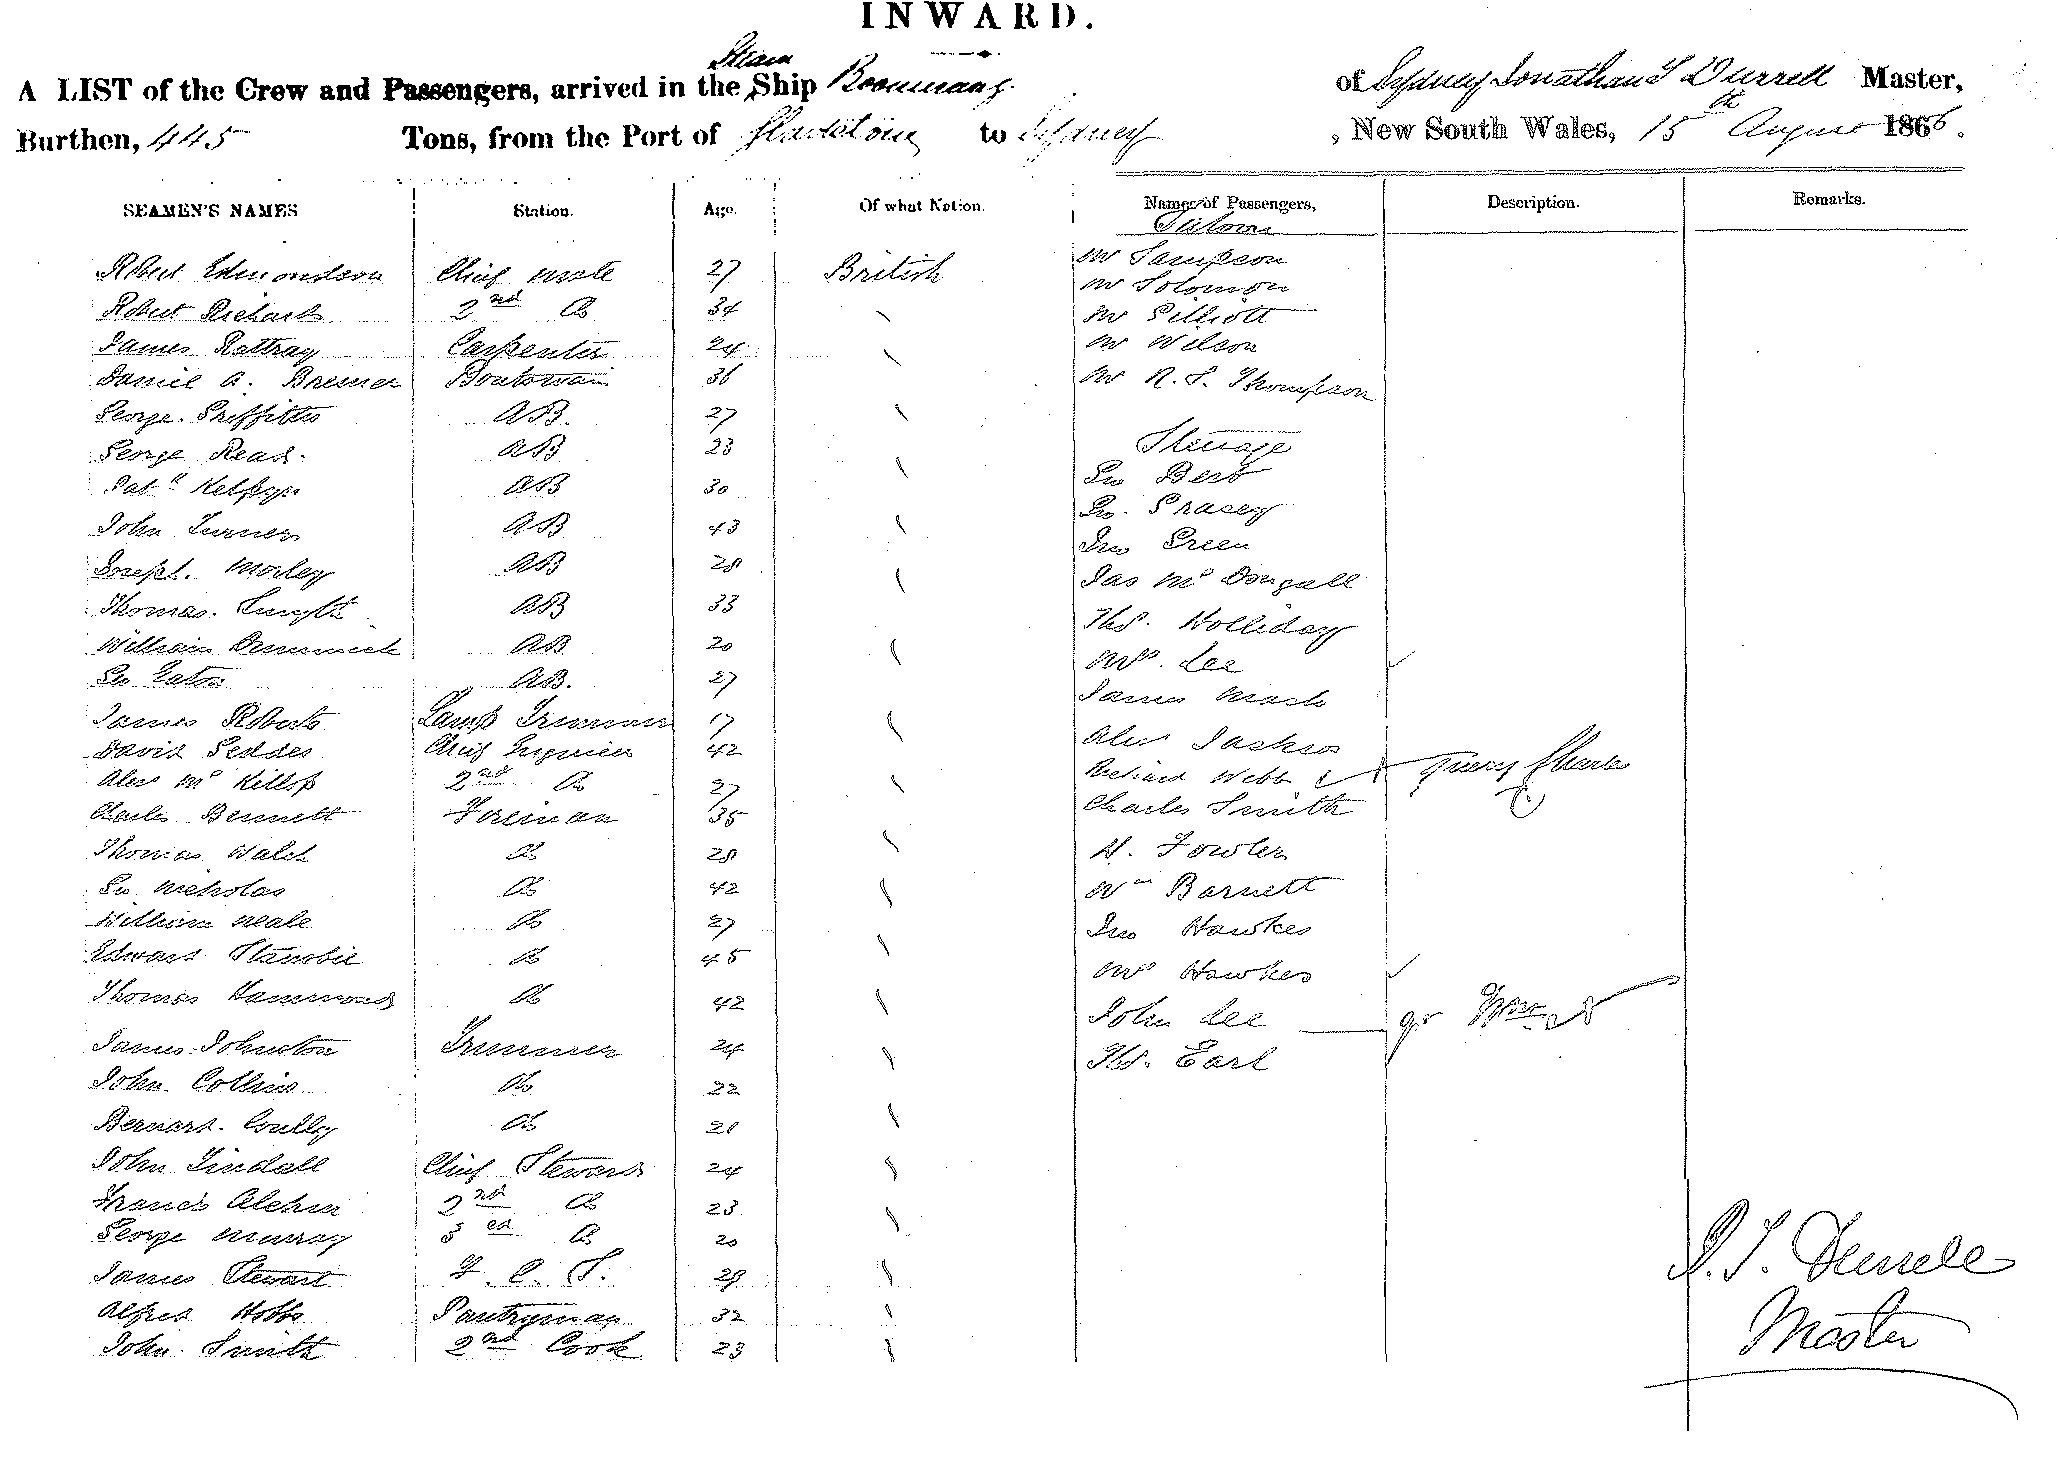 INWARD.
A LIST of the Crew and Passengers, arrived in the Steam Ship Boomerang of Sydney Jonathan S Durrell Master,
Burthen, 445 Tons, from the Port of Gladstone to Sydney , New South Wales, 15th August 1866.
SEAMEN'S NAMES Station. Age. Of what Nation. Names of Passengers, Description. Remarks.
Saloon
Robert Edmondson Chief Mate 27 British
Robert Richards 2nd Do 34
James Rattray Carpenter 24
Daniel A. Bremer Boatswain 36
George Griffiths AB. 27
George Read AB 23
Patk AB 30
John Turner AB 43
Joseph Morley AB 28
Thomas Smyth AB 33
William AB 20
Geo Eaton AB. 27
James Roberts Lamp Trimmer 17
David Geddes Chief Engineer 42
Alex McKillop 2nd Do 27
Charles Bennett Fireman 35
Thomas Walsh Do 28
Geo Nicholas Do 42
William Neale Do 27
Edward Stanobie Do 45
Thomas Hammond Do 42
James Johnston Trimmer 24
John Collins Do 22
Bernard Coully Do 21
John Tindall Chief Steward 24
Francis Alchin 2nd Do 23
George Murray 3rd Do 20
James Stewart F. C. S. 29
Alfred Hobbs Pantryman 32
John Smith 2nd Cook 23
Mr Sampson
Mr Solomon
Mr Gilliott
Mr Wilson
Mr R. S. Thompson
Steerage
Geo Best
Geo. Gracey
Jno Green
Jas McDougall
Ths. Holliday
Mrs. Lee
James Mash
Alex Jackson
Richard Webb
Charles Smith
H. Fowler
Wm Barnett
Jno Hawkes
Mrs Hawkes
John Lee
Ths. Earl
J. S. Durrell
Master